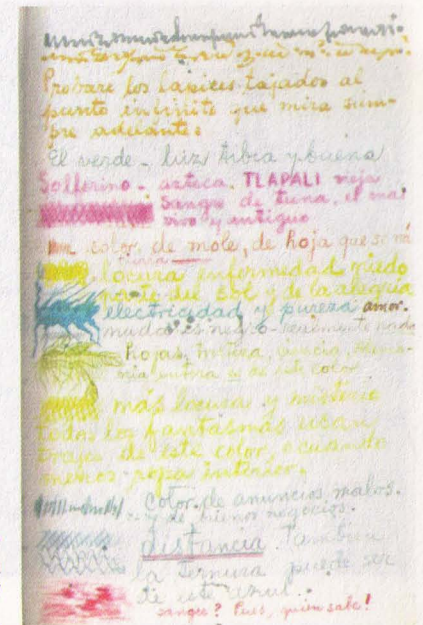 Probaré los lápices tajados al
punto infinito que mira siem-
pre adelante:
El verde - luz tibia y buena
Solferino - azteca. TLAPALI vieja
sangre de tuna, el más
vivo y antiguo
color de mole, de hoja que se va
tierra
locura enfermedad miedo
parte del sol y de la alegría
electricidad y pureza amor.
nada es negro - realmente nada
hojas, tristeza, ciencia,
entera es de este color
más locura y misterio
todos los fantasmas usan
trajes de este color, o cuando
menos ropa interior.
color de anuncios malos.
y de buenos negocios.
distancia. También
la ternura puede ser
de este azul.
sangre? Pues, quién sabe!